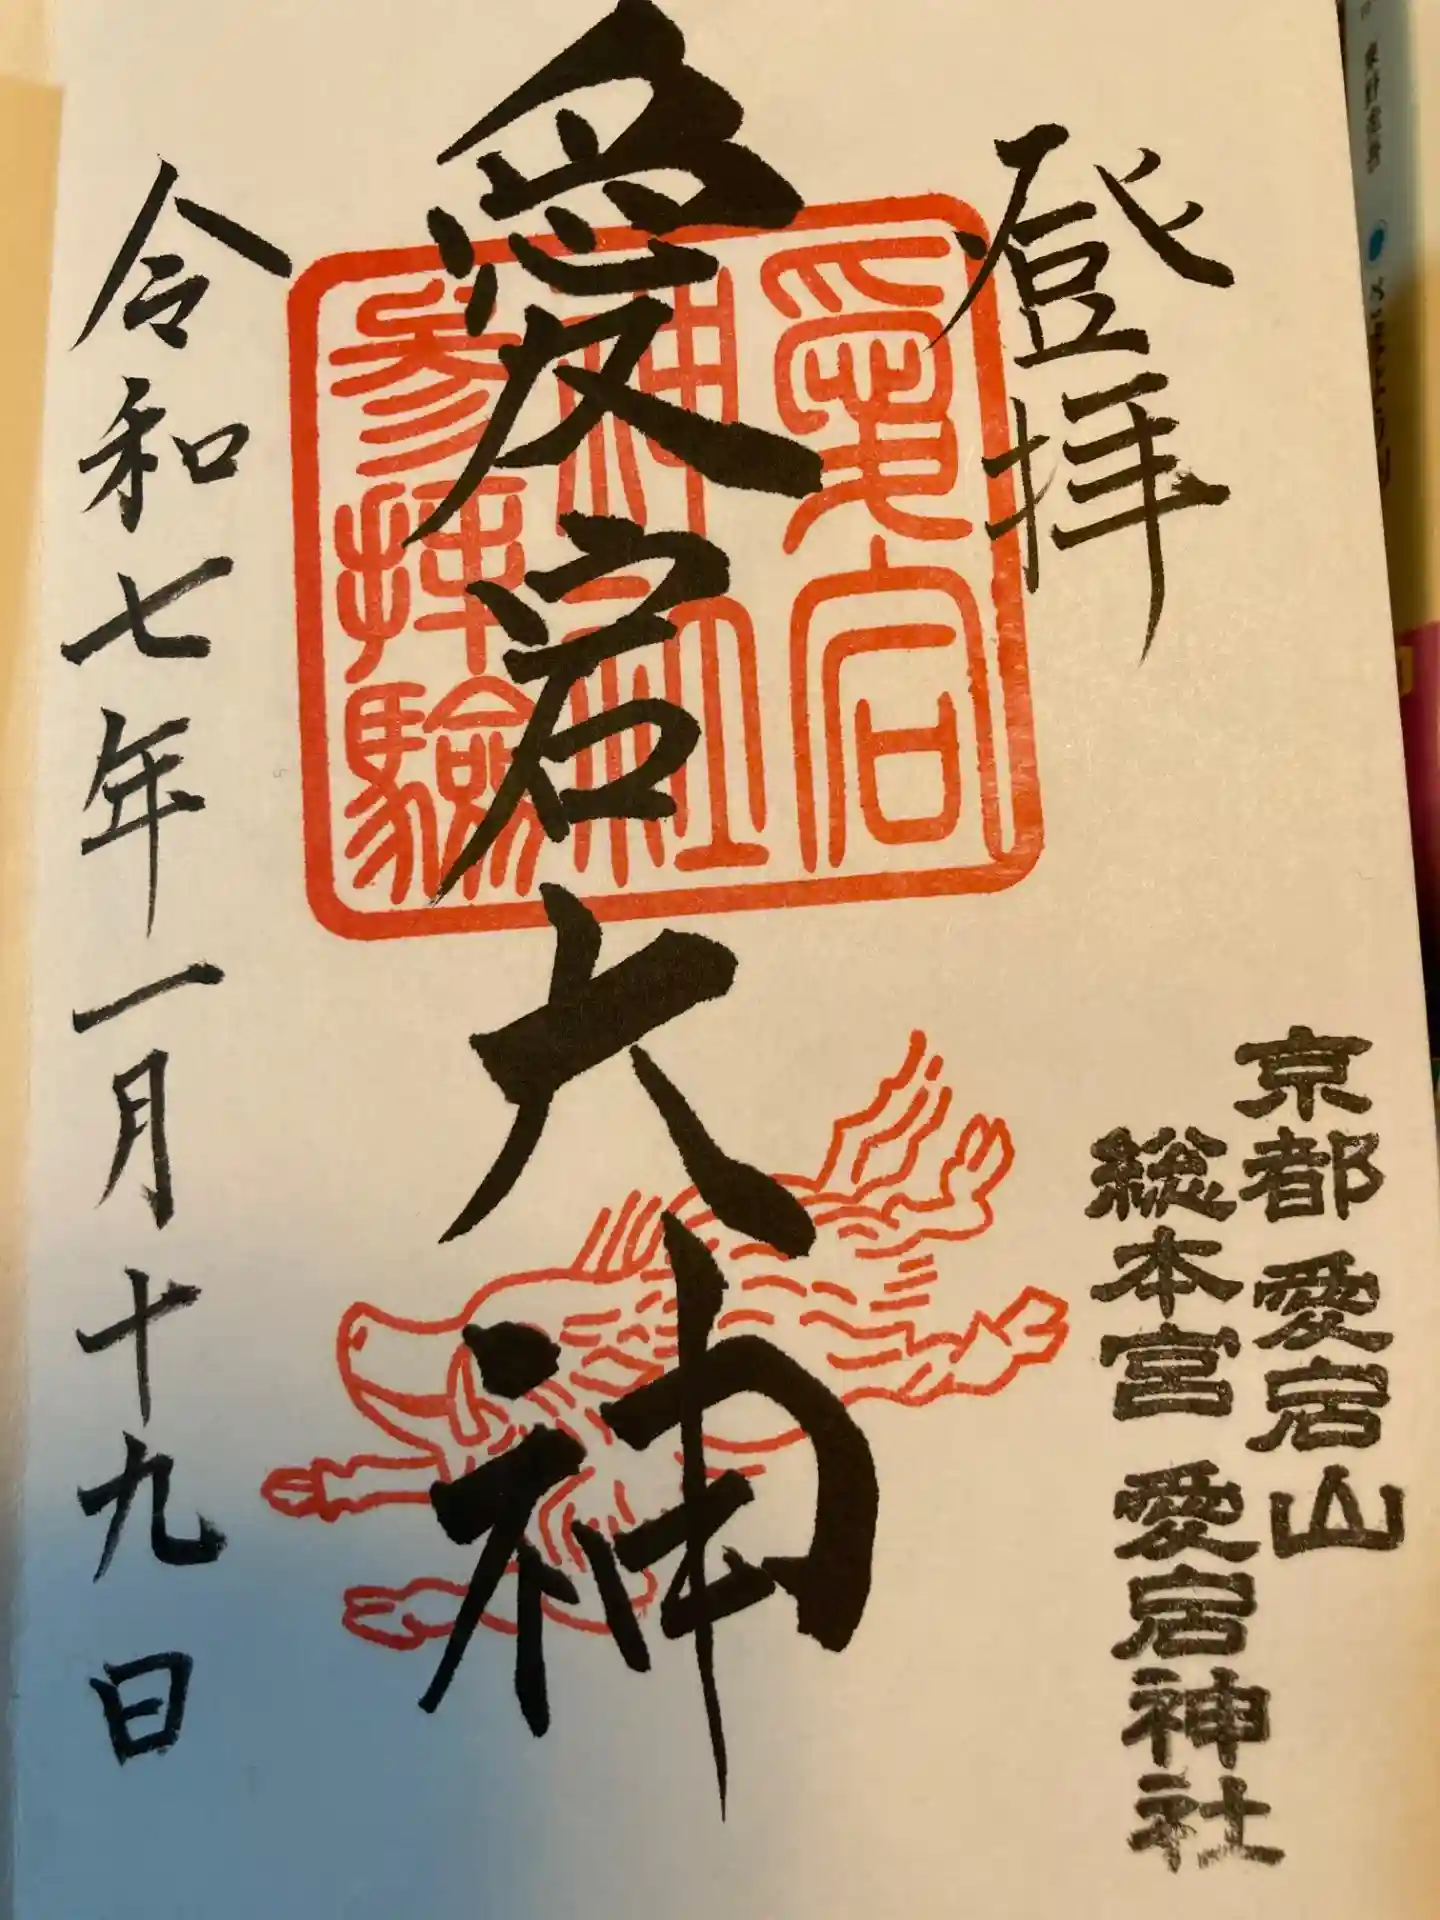 登拝
京都 愛宕山
総本宮 愛宕神社
愛宕大神
愛宕
神社
参拝験
令和七年一月十九日